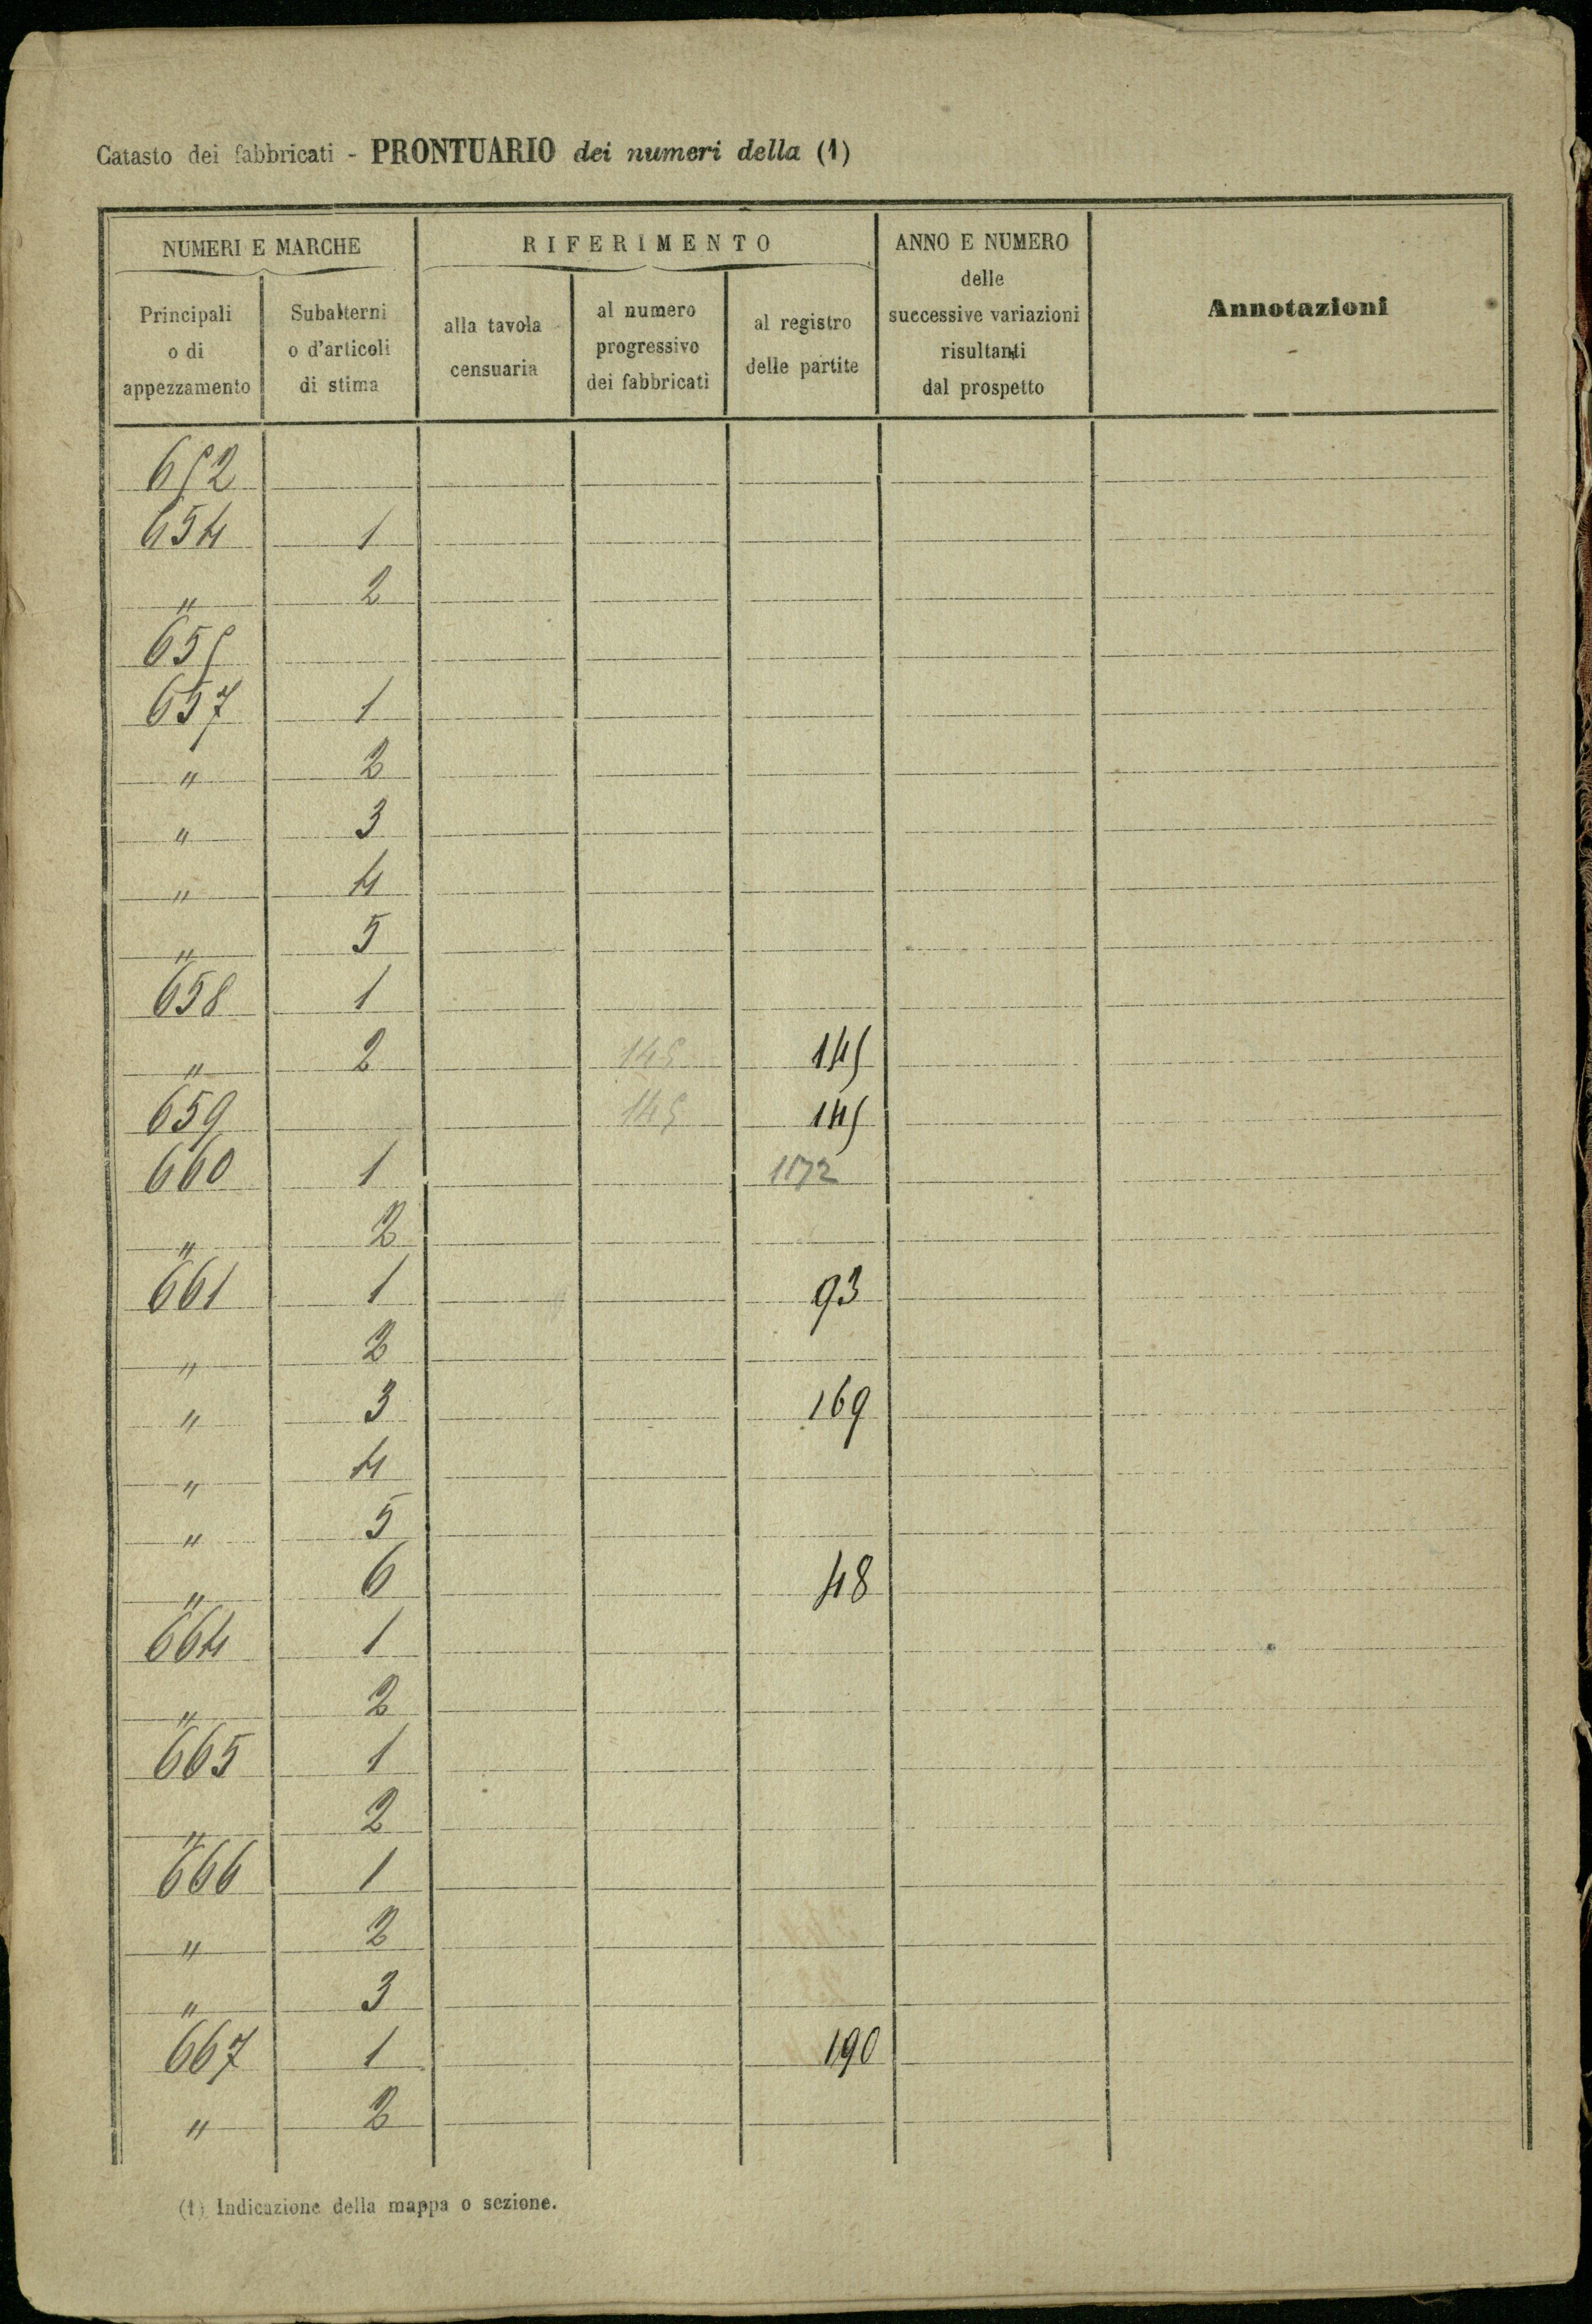 Catasto dei fabbricati - PRONTUARIO dei numeri della (1)
NUMERI E MARCHE
RIFERIMENTO
ANNO E NUMERO
delle
successive variazioni
risultanti
dal prospetto
Annotazioni
Principali
o di
appezzamento
Subalterni
o d'articoli
di stima
alla tavola
censuaria
al numero
progressivo
dei fabbricati
al registro
delle partite
652
654 1
" 2
655
657 1
" 2
" 3
" 4
" 5
658 1
" 2 145 145
659 145 145
660 1 1172
" 2
661 1 93
" 2
" 3 169
" 4
" 5
" 6 48
664 1
" 2
665 1
" 2
666 1
" 2
" 3
667 1 190
" 2
(1) Indicazione della mappa o sezione.